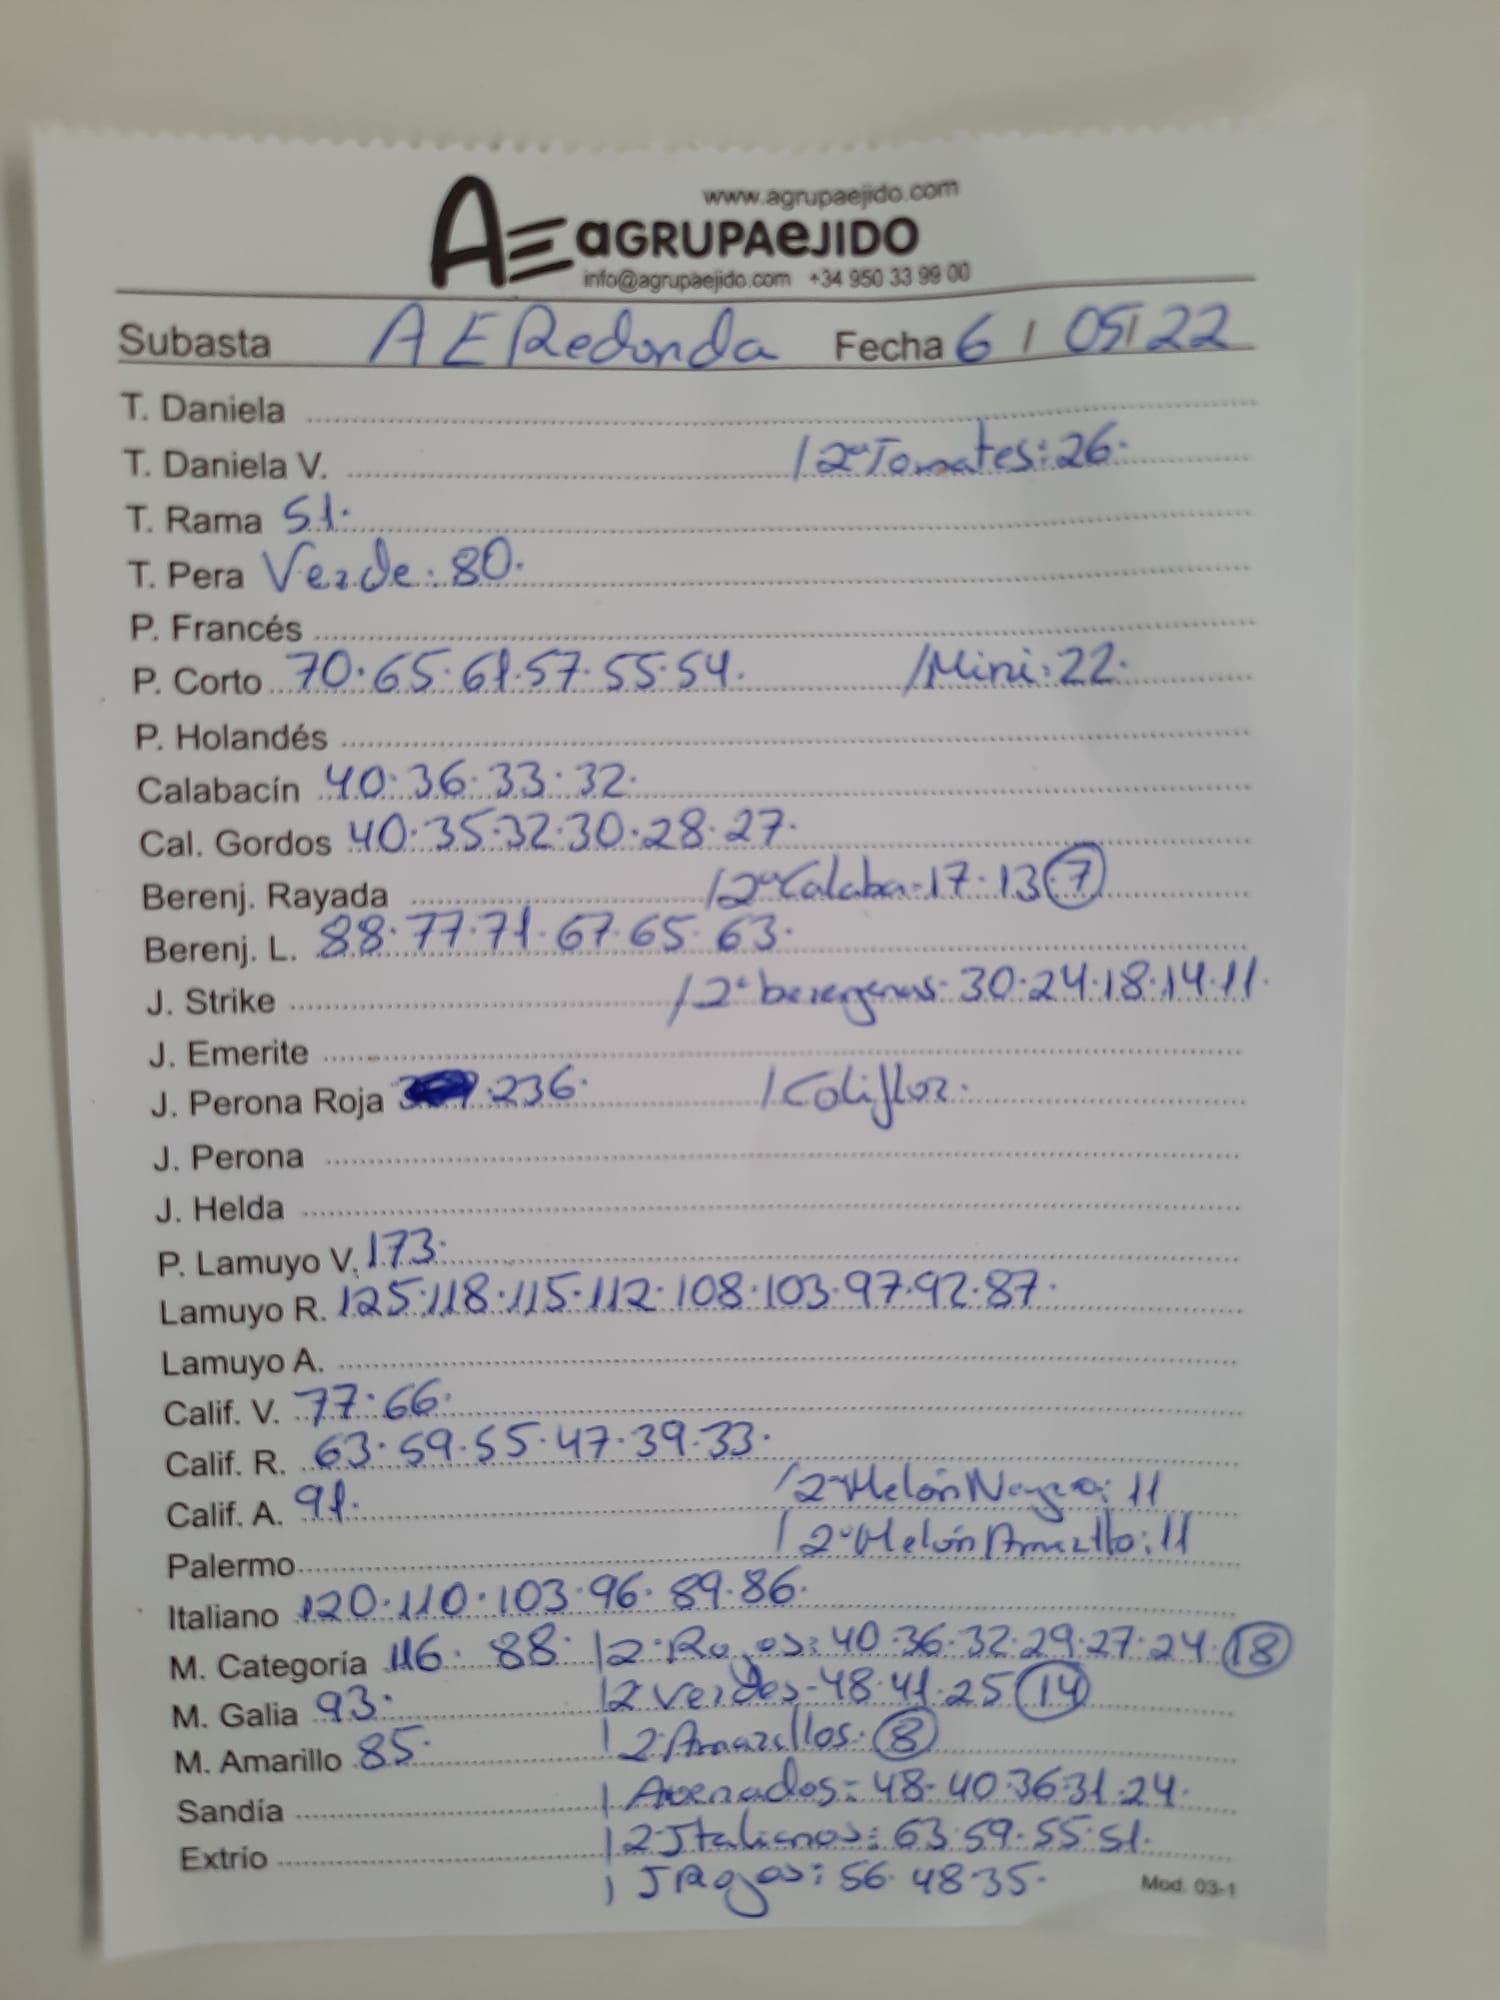 www.agrupaejido.com
AE aGRUPAeJIDO
info@agrupaejido.com +34 950 33 99 00
Subasta AE Redonda Fecha 6 / 05/22
T. Daniela
T. Daniela V. /2ª Tomates: 26.
T. Rama 51.
T. Pera Verde: 80.
P. Francés
P. Corto 70.65.61.57.55.54. /Mini: 22.
P. Holandés
Calabacín 40.36.33.32.
Cal. Gordos 40.35.32.30.28.27.
Berenj. Rayada /2ª Calaba-17.13 7
Berenj. L. 88.77.71.67.65.63.
J. Strike /2ª berengenas-30.24.18.14.11.
J. Emerite
J. Perona Roja .236. /Coliflor.
J. Perona
J. Helda
P. Lamuyo V. 173.
Lamuyo R. 125.118.115.112.108.103.97.92.87.
Lamuyo A.
Calif. V. 77.66.
Calif. R. 63.59.55.47.39.33.
Calif. A. 91. /2ª Melón Negro: 11
Palermo /2ª Melón Amarillo: 11
Italiano 120.110.103.96.89.86.
M. Categoría 116. 88. /2ª Rojos: 40.36.32.29.27.24. 18
M. Galia 93. /2 Verdes-48.41.25 14
M. Amarillo 85. /2 Amarillos. 8
Sandía / Asenados: 48.40.36.31.24.
Extrio /2 Italianos: 63.59.55.51.
/ J Rojos: 56.48.35.
Mod. 03-1